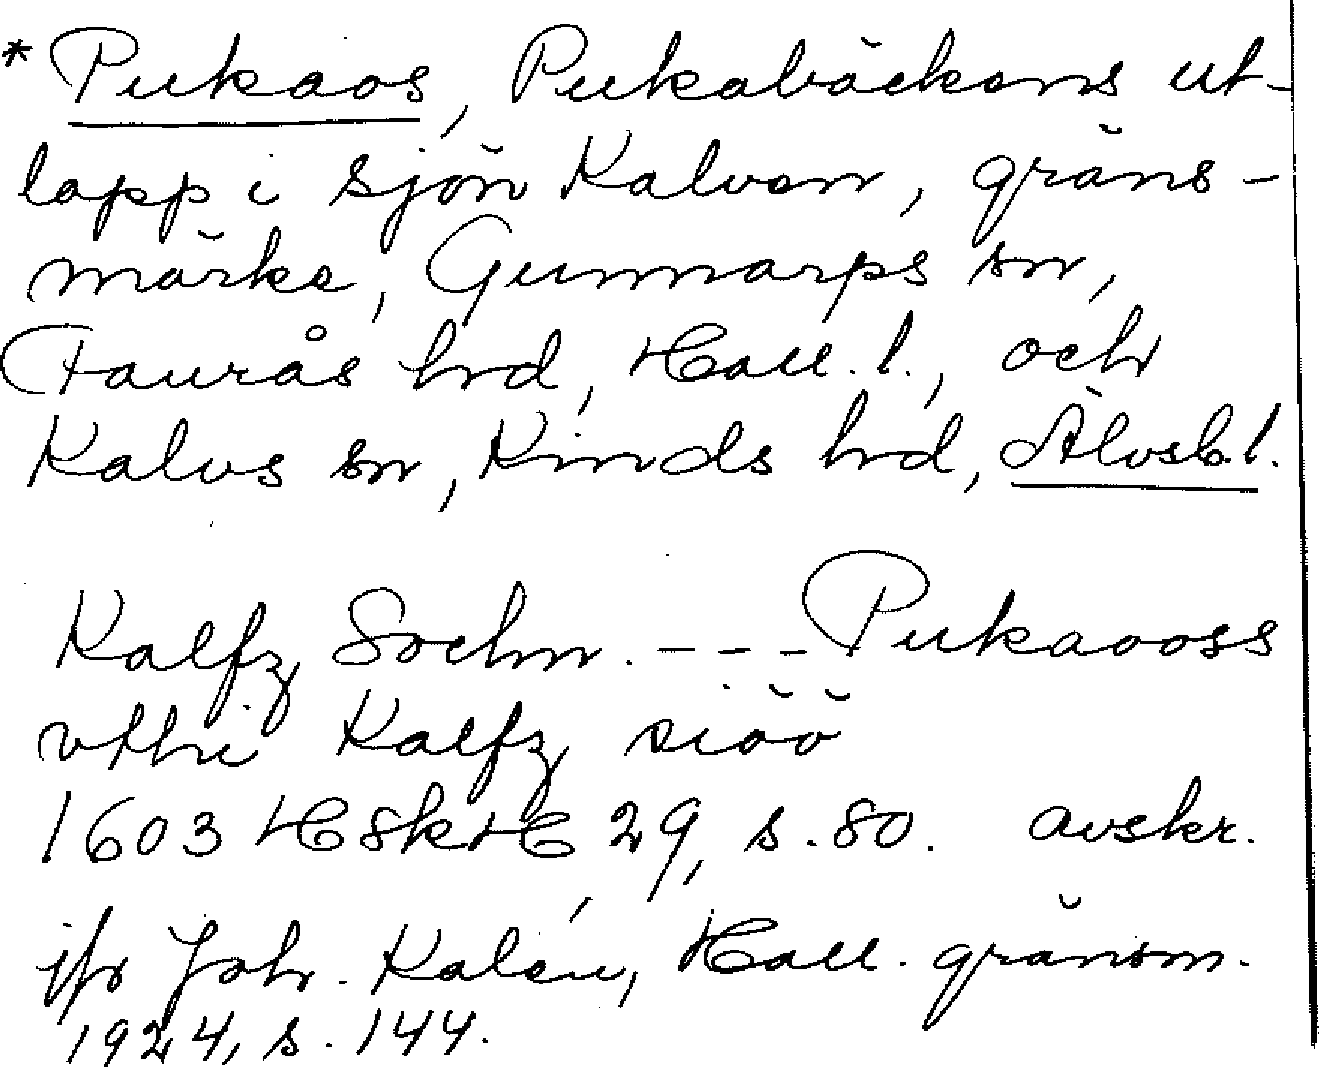 * Pukaos, Pukabäckens ut-
lopp i sjön Kalven, gräns-
märke, Gunnarps sn,
Faurås hrd, Hall. l., och
Kalvs sn, Kinds hrd, Älvsb.l.
Kalfz Sochn. --- Pukaooss
vthi Kalfz siöö
1603 HSkH 29, s. 80. avskr.
jfr Joh. Kalén, Hall. gränsm.
1924, s. 144.